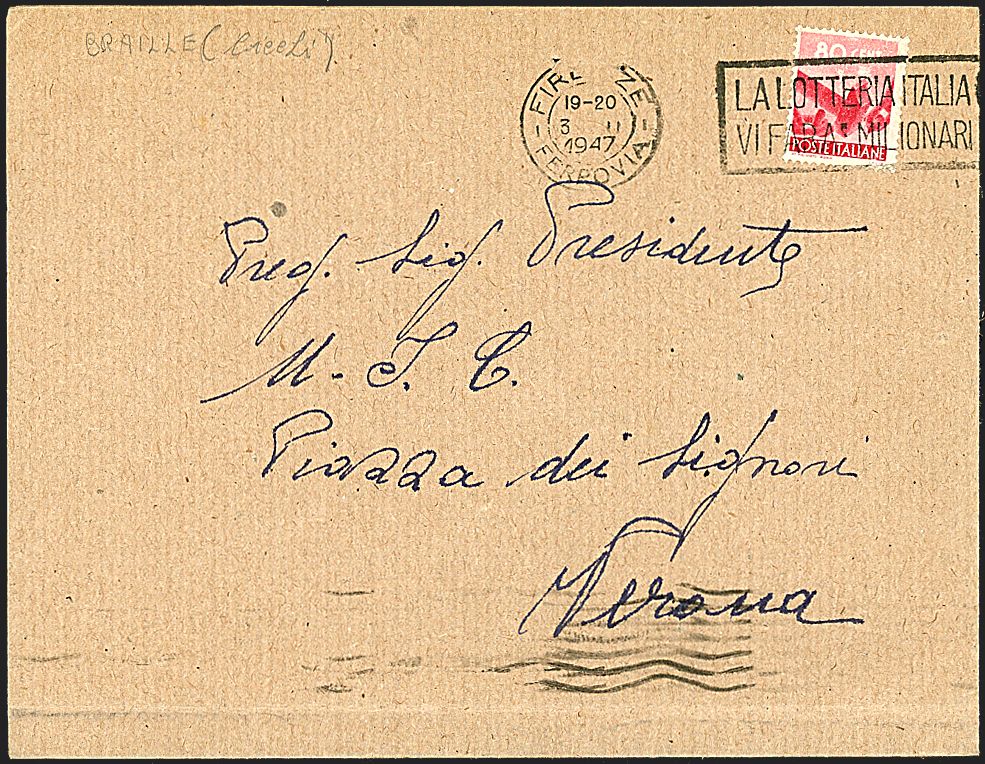 BRAILLE (Ciechi)
FIRENZE
19-20
3 - II
1947
FERROVIA
80 CENT
LA LOTTERIA ITALIA
VI FARA' MILIONARI
POSTE ITALIANE
Preg. Sig. Presidente
U. I. C.
Piazza dei Signori
Verona